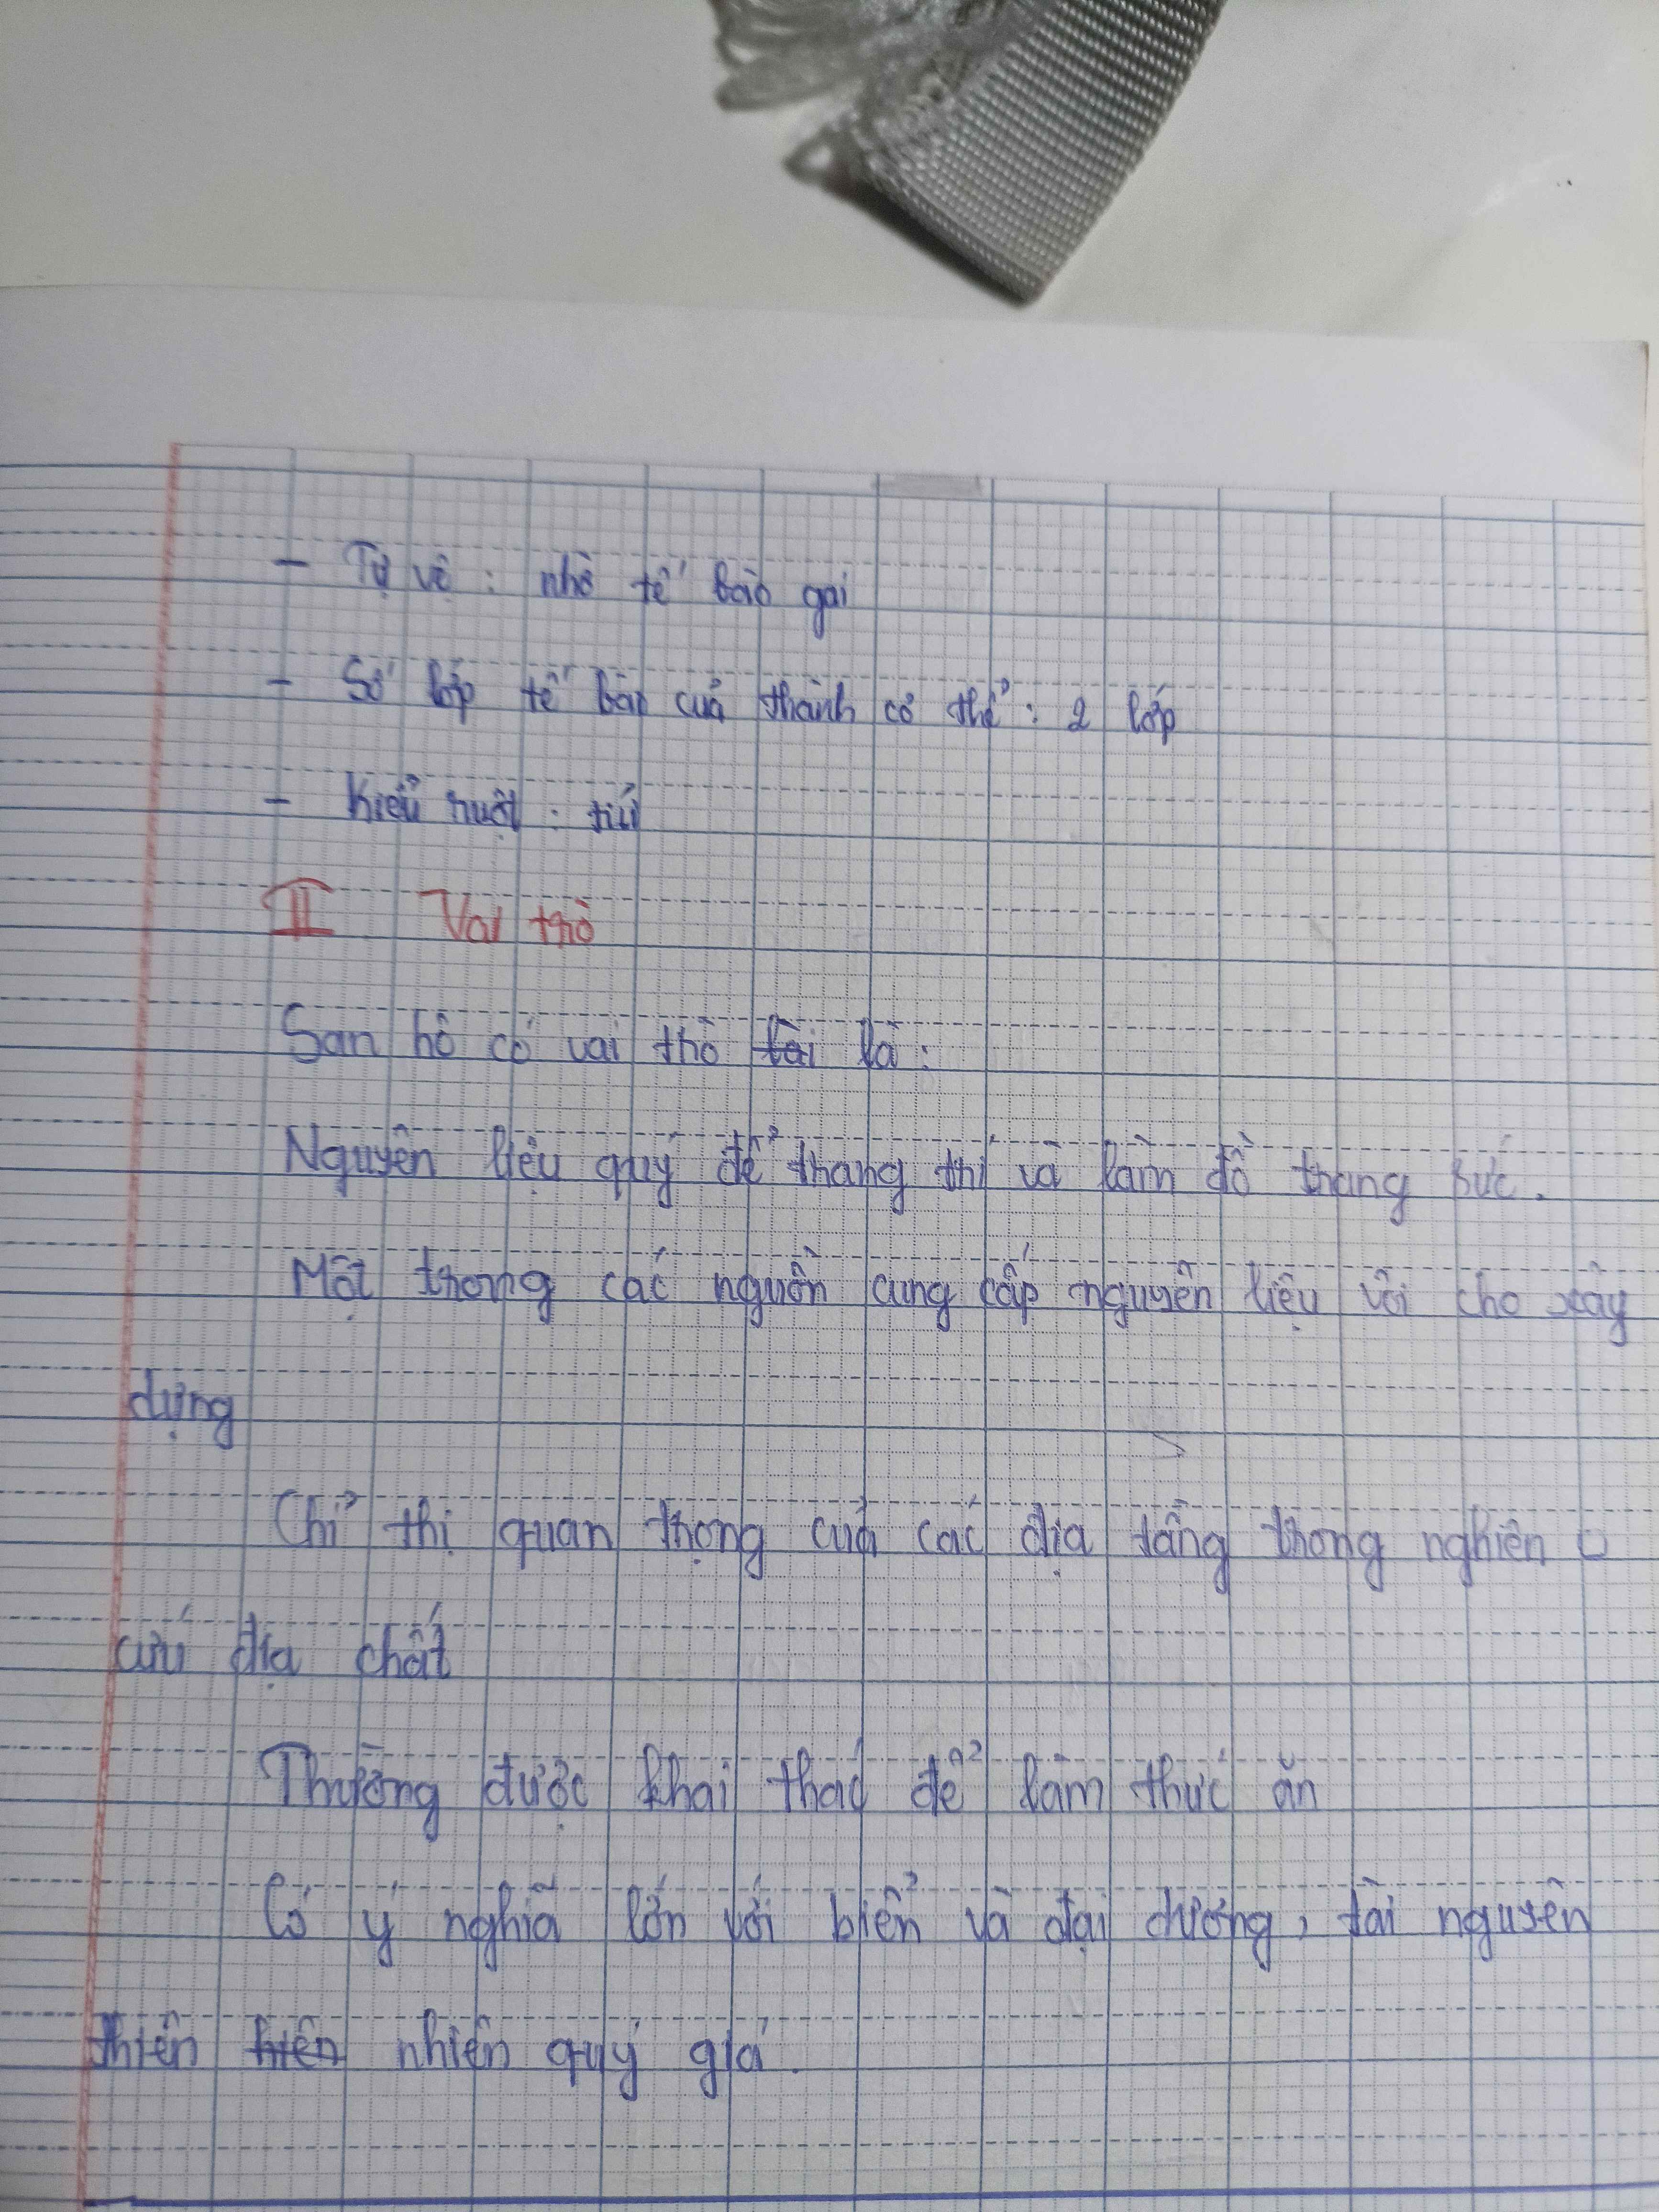 - Tự vệ : nhờ tế bào gai
- Số lớp tế bào của thành cơ thể : 2 lớp
- Kiểu ruột : túi
II Vai trò
San hô có vai trò là :
Nguyên liệu quý để trang trí và làm đồ trang sức.
Một trong các nguồn cung cấp nguyên liệu vôi cho xây
dựng
Chỉ thị quan trọng của các địa tầng trong nghiên c
cứu địa chất
Thường được khai thác để làm thức ăn
Có ý nghĩa lớn với biển và đại dương, tài nguyên
thiên nhiên quý giá.